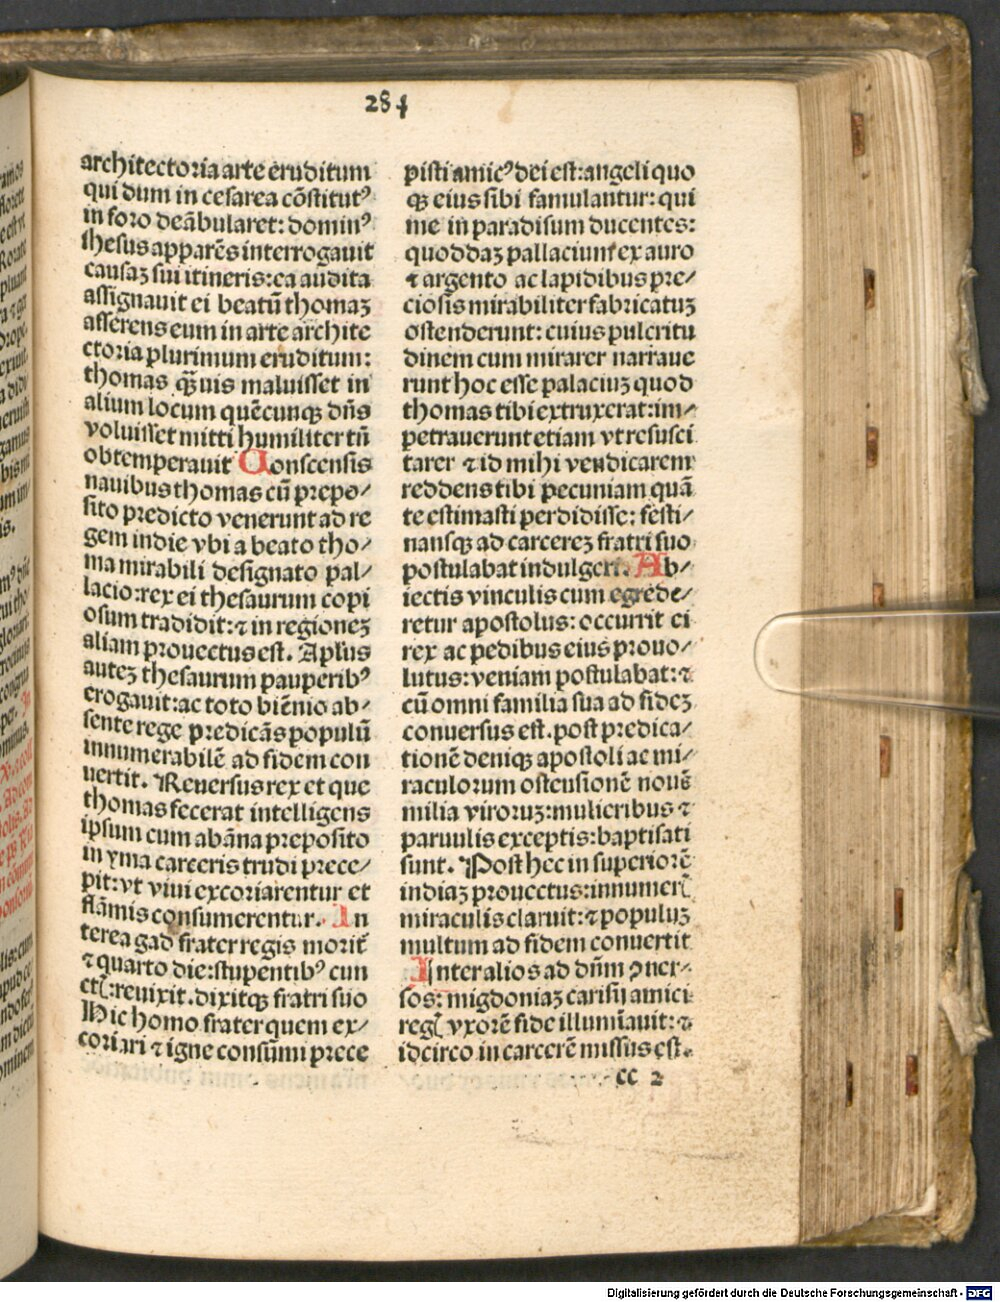 284
architectoria arte eruditum
qui dum in cesarea cõstitutꝰ
in foro deãbularet: dominꝰ
ihesus apparẽs interrogauit
causaꝫ sui itineris: ea audita
assignauit ei beatũ thomaꝫ
asserens eum in arte archite
ctoria plurimum eruditum:
thomas qꝫuis maluisset in
alium locum quẽcunqꝫ dñs
voluisset mitti humiliter tñ
obtemperauit Conscensis
nauibus thomas cũ prepo⸗
sito predicto venerunt ad re
gem indie vbi a beato tho⸗
ma mirabili designato pal⸗
lacio: rex ei thesaurum copi
osum tradidit: ⁊ in regioneꝫ
aliam prouectus est. Aplus
auteꝫ thesaurum pauperibꝰ
erogauit: ac toto biẽnio ab⸗
sente rege predicãs populũ
innumerabilẽ ad fidem con
uertit. Reuersus rex et que
thomas fecerat intelligens
ipsum cum abãna preposito
in yma carceris trudi prece⸗
pit: vt viui excoriarentur et
flãmis consumerentur. In
terea gad frater regis morit̃
⁊ quarto die: stupentibꝰ cun
ctꝭ: reuixit. dixitqꝫ fratri suo
Hic homo frater quem ex⸗
coriari ⁊ igne consũmi prece
pisti amicꝰ dei est: angeli quo
qꝫ eius sibi famulantur: qui
me in paradisum ducentes:
quoddaꝫ pallacium ex auro
⁊ argento ac lapidibus pre⸗
ciosis mirabiliter fabricatuꝫ
ostenderunt: cuius pulcritu
dinem cum mirarer narraue
runt hoc esse palaciuꝫ quod
thomas tibi extruxerat: im⸗
petrauerunt etiam vt resusci
tarer ⁊ id mihi vendicarem
reddens tibi pecuniam quã
te estimasti perdidisse: festi⸗
nansqꝫ ad carcereꝫ fratri suo
postulabat indulgeri. Ab⸗
iectis vinculis cum egrede⸗
retur apostolus: occurrit ei
rex ac pedibus eius prouo⸗
lutus: veniam postulabat: ⁊
cũ omni familia sua ad fideꝫ
conuersus est. post predica⸗
tionẽ deniqꝫ apostoli ac mi⸗
raculorum ostensionẽ nouẽ
milia viroruꝫ: mulieribus ⁊
paruulis exceptis: baptisati
sunt. Post hec in superiorẽ
indiaꝫ prouectus: innumerꝭ
miraculis claruit: ⁊ populuꝫ
multum ad fidem conuertit
Inter alios ad dñm ꝯuer⸗
sos: migdoniaꝫ carisij amici
regꝭ vxorẽ fide illumĩauit: ⁊
idcirco in carcerẽ missus est.
cc 2
Digitalisierung gefördert durch die Deutsche Forschungsgemeinschaft - DFG